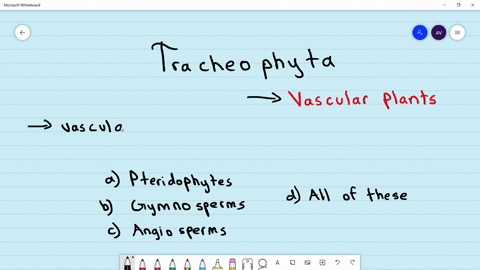 Microsoft Whiteboard
AV
Tracheophyta
→ Vascular plants
→ vascula
a) Pteridophytes
b) Gymno sperms
c) Angio sperms
d) All of these